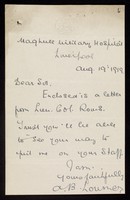 Maghull Military Hospital
Liverpool
Aug 19th 1919
Dear Sir,
Enclosed is a letter
from Lieu. Col
Trust you'll be able
to see your way to
put me on your Staff
I am
Yours faithfully
A.B.